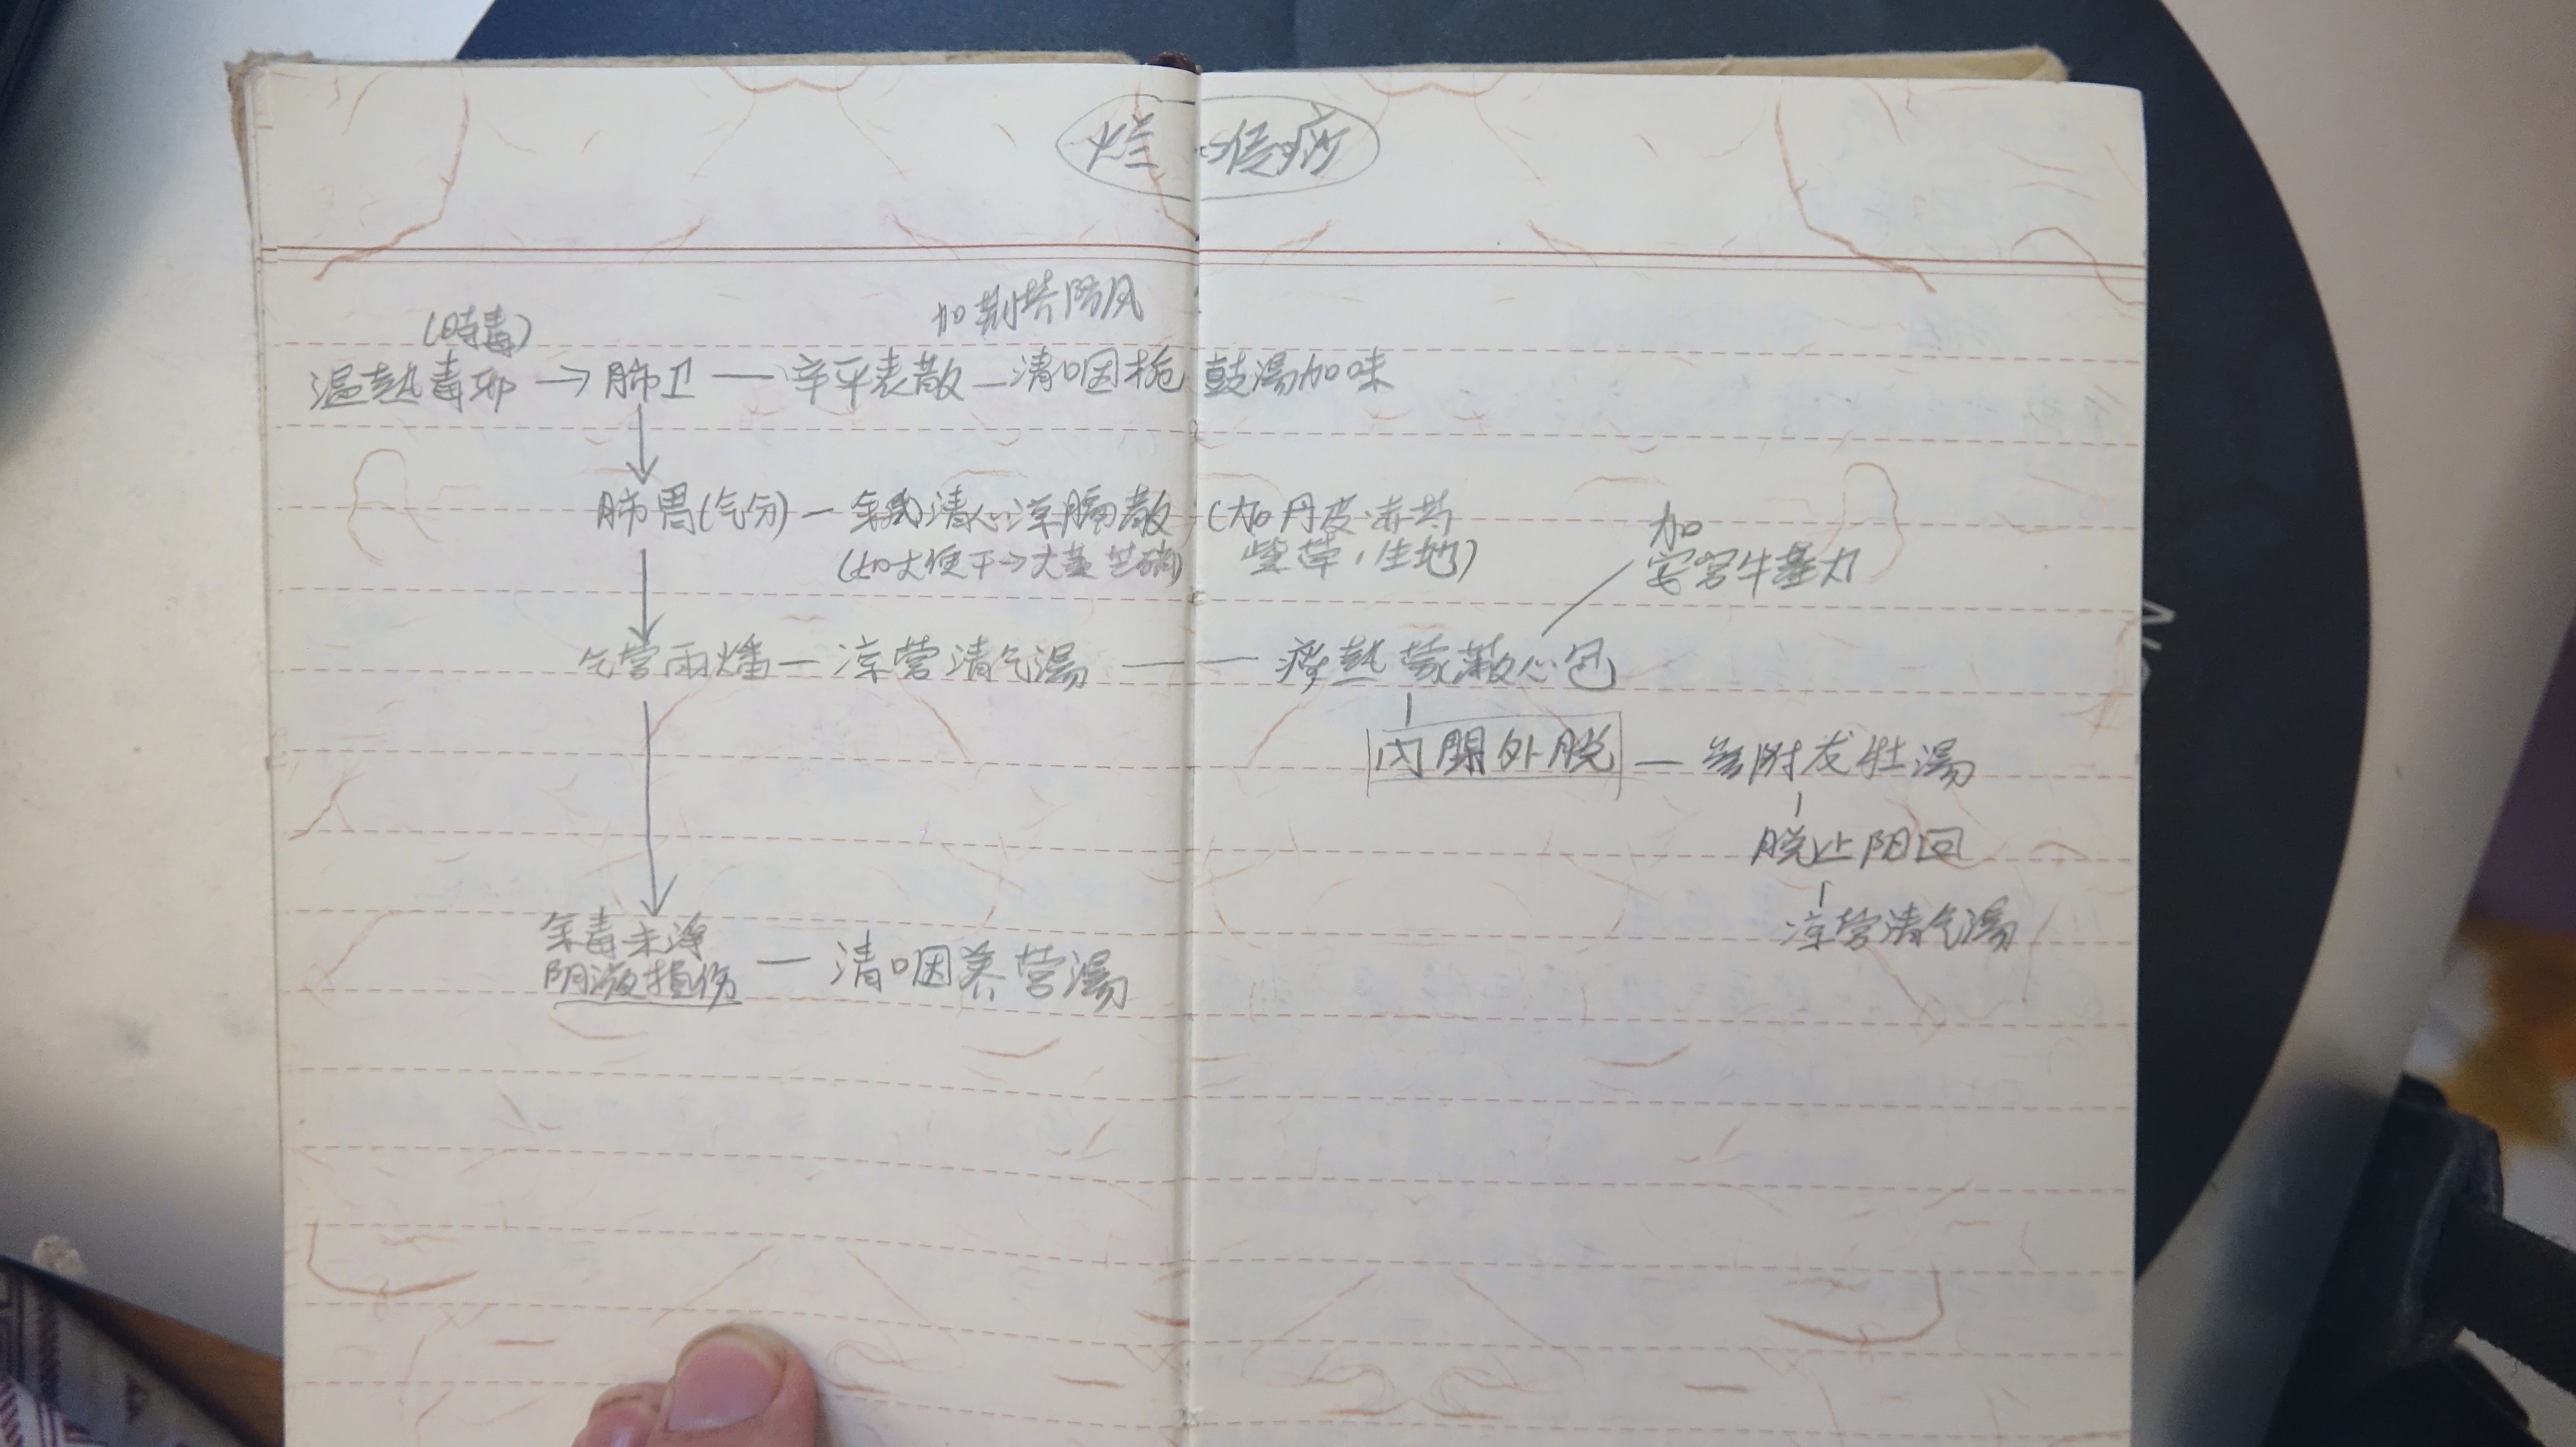 烂喉痧
加荆芥防风
(時毒)
温熱毒邪 → 肺卫 — 辛平表散 — 清咽栀豉湯加味
肺胃(气分) — 余氏清心凉膈散 (加丹皮、赤芍
(如大便干→大黄芒硝) 紫草、生地)
加
安宫牛黄丸
气营両燔 — 凉营清气湯 —— 痰熱蒙蔽心包
内閉外脱 — 参附龙牡湯
脱止阳回
余毒未净
凉营清气湯
阴液损伤 — 清咽养营湯